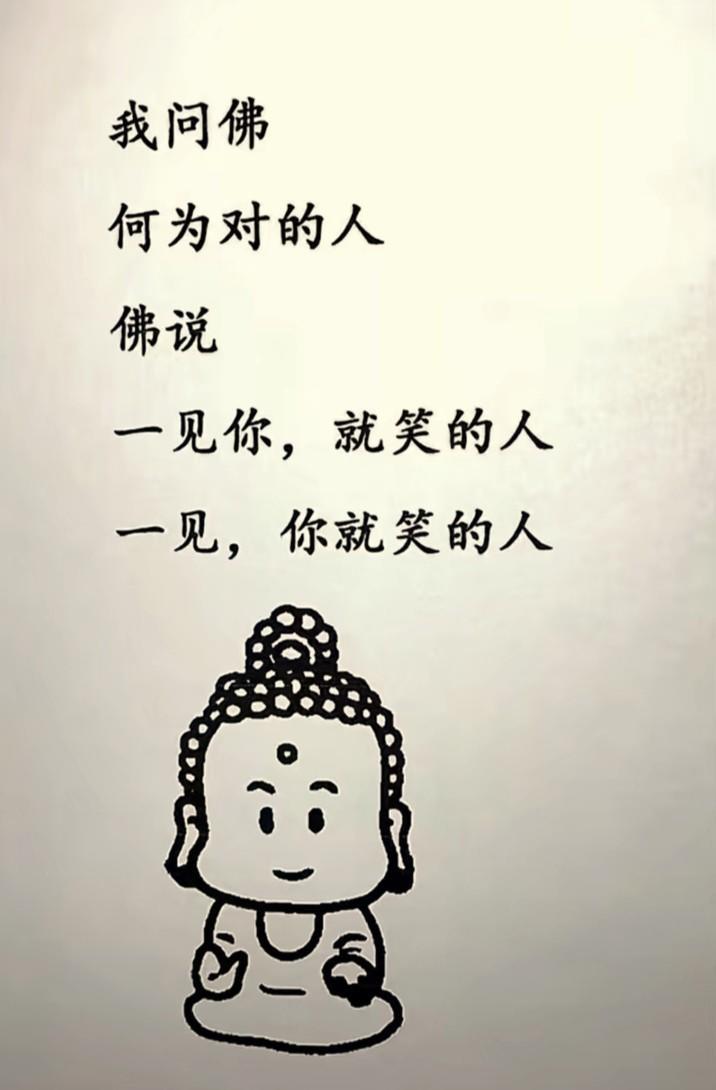 我问佛
何为对的人
佛说
一见你，就笑的人
一见，你就笑的人